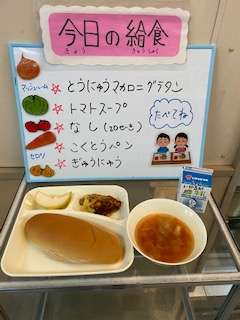 今日の給食
きょう きゅうしょく
マッシュルーム
☆とうにゅうマカロニグラタン
☆トマトスープ
☆なし(20せいき)
☆こくとうパン
セロリ
☆ぎゅうにゅう
たべてね